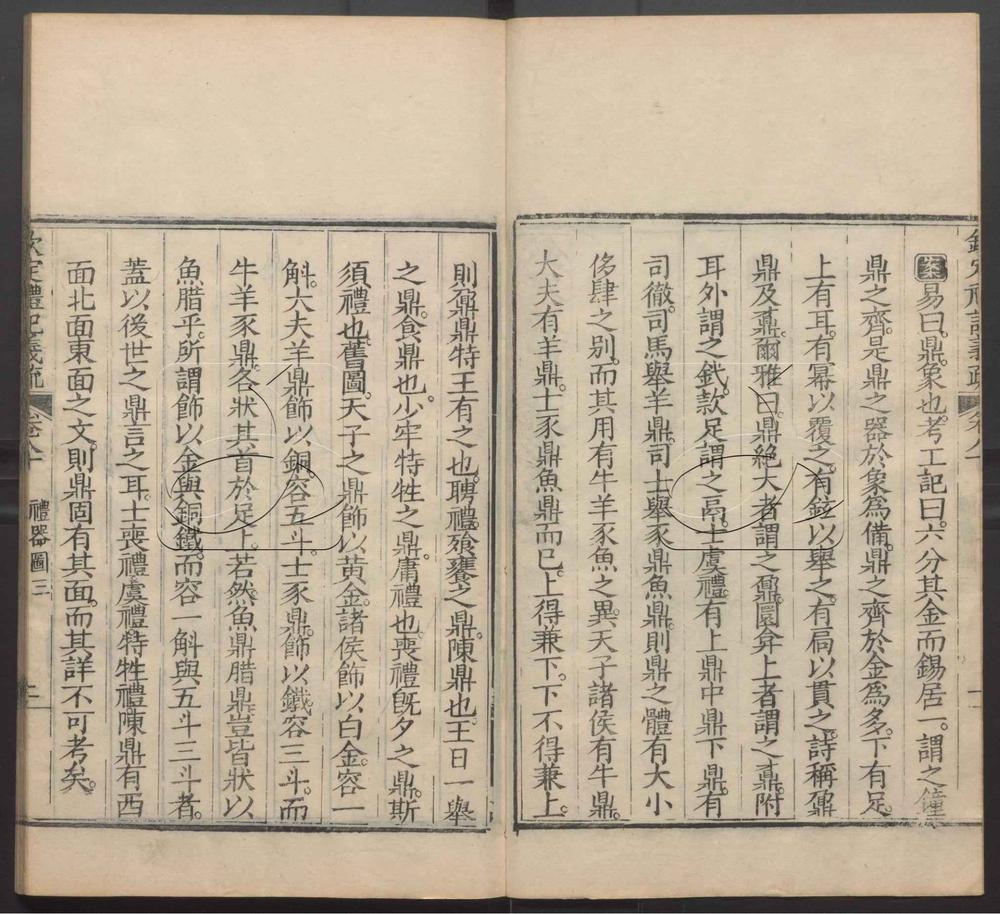 欽定禮記義疏 卷八十
案易曰鼎象也考工記曰六分其金而錫居一謂之鐘
鼎之齊是鼎之器於象為備鼎之齊於金為多下有足
上有耳有冪以覆之有鉉以舉之有扃以貫之詩稱鼐
鼎及鼒爾雅曰鼎絕大者謂之鼐圜弇上者謂之鼒附
耳外謂之釴款足謂之鬲士虞禮有上鼎中鼎下鼎有
司徹司馬舉羊鼎司士舉豕鼎魚鼎則鼎之體有大小
侈肆之别而其用有牛羊豕魚之異天子諸侯有牛鼎
大夫有羊鼎士豕鼎魚鼎而已上得兼下下不得兼上
則鼐鼎特王有之也聘禮飱饔之鼎陳鼎也王日一舉
之鼎食鼎也少牢特牲之鼎庸禮也喪禮旣夕之鼎斯
須禮也舊圖天子之鼎飾以黄金諸侯飾以白金容一
斛大夫羊鼎飾以銅容五斗士豕鼎飾以鐵容三斗而
牛羊豕鼎各狀其首於足上若然魚鼎腊鼎豈皆狀以
魚腊乎所謂飾以金與銅鐵而容一斛與五斗三斗者
蓋以後世之鼎言之耳士喪禮虞禮特牲禮陳鼎有西
面北面東面之文則鼎固有其面而其詳不可考矣
欽定禮記義疏 卷八十 禮器圖三 二